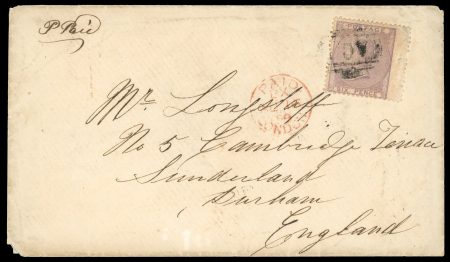 P Paid
POSTAGE
SIX PENCE
PAID
Mr. Longstaff
No 5 Cambridge Terrace
Sunderland
Durham
England